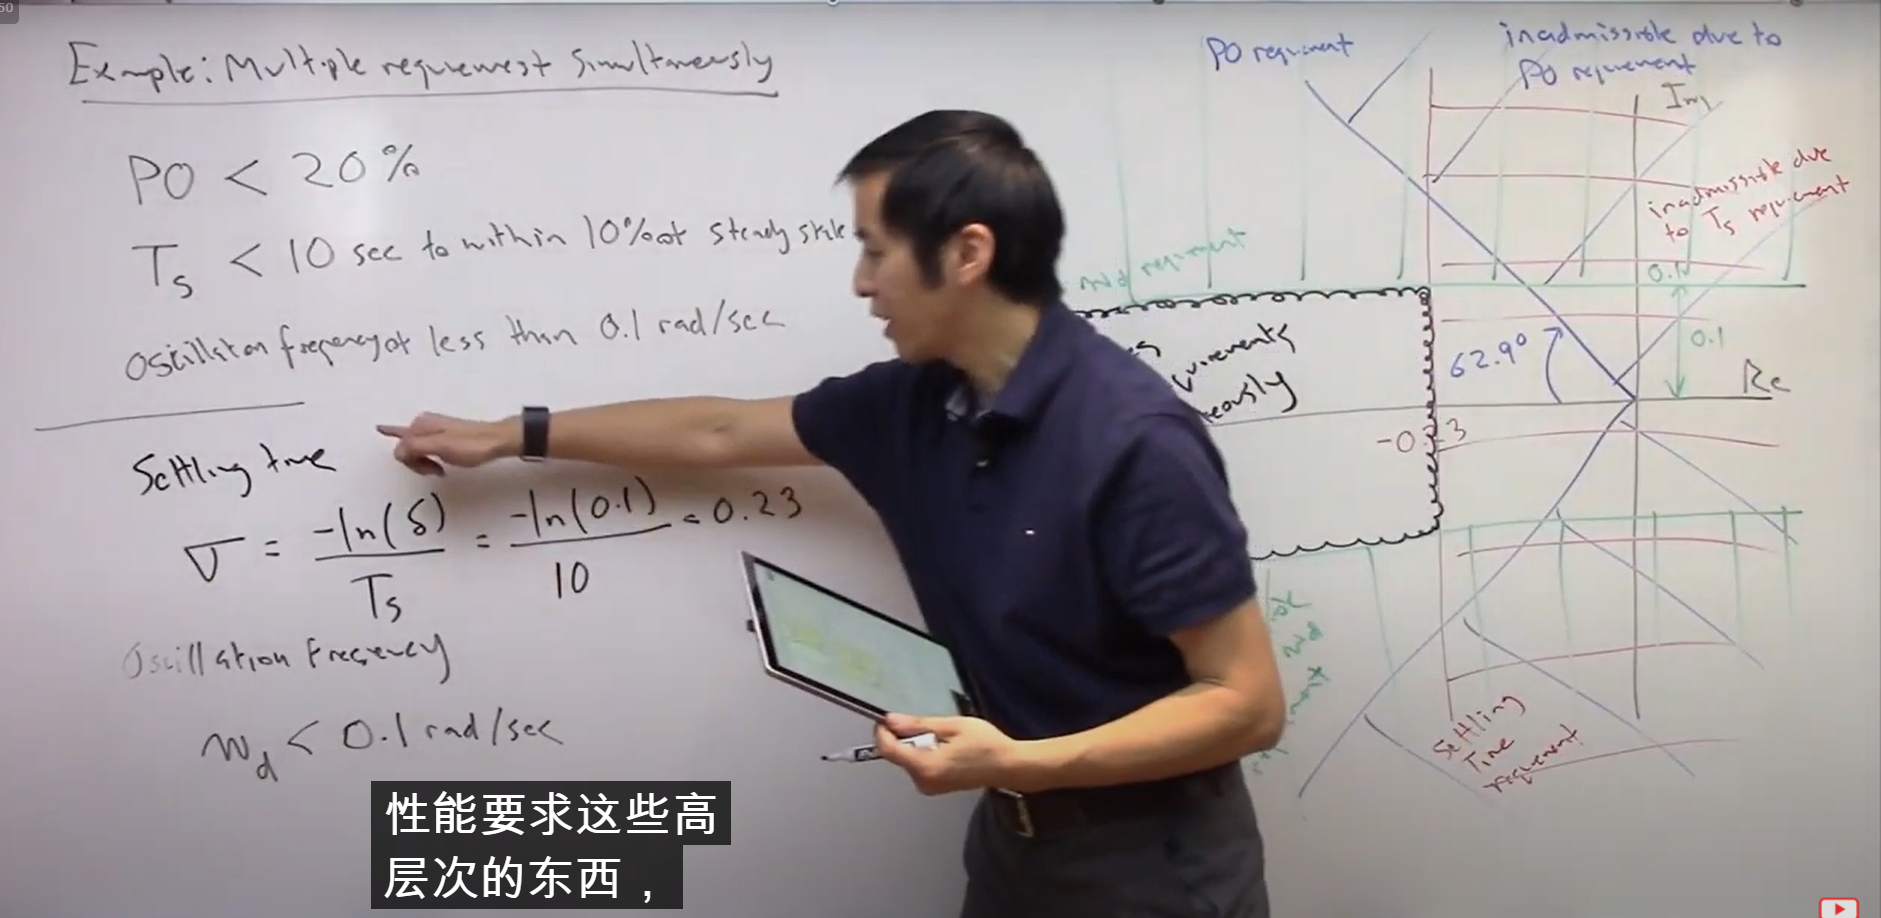 50
Example: Multiple requirement Simultaneously
PO < 20%
Ts < 10 sec to within 10% of steady state
Oscillation frequency of less than 0.1 rad/sec
Settling time
σ = -ln(δ)/Ts = -ln(0.1)/10 = 0.23
Oscillation Frequency
wd < 0.1 rad/sec
性能要求这些高
层次的东西，
PO requirment
inadmissible due to
PO requirement
Im
inadmissible due
to Ts requirment
wd requirment
0.1
62.9°
0.1
Re
-0.23
Settling
Time
requirement